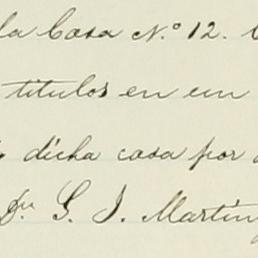 la Casa N.º 12.
titulos en un
dicha casa por
Dn G. J. Martín